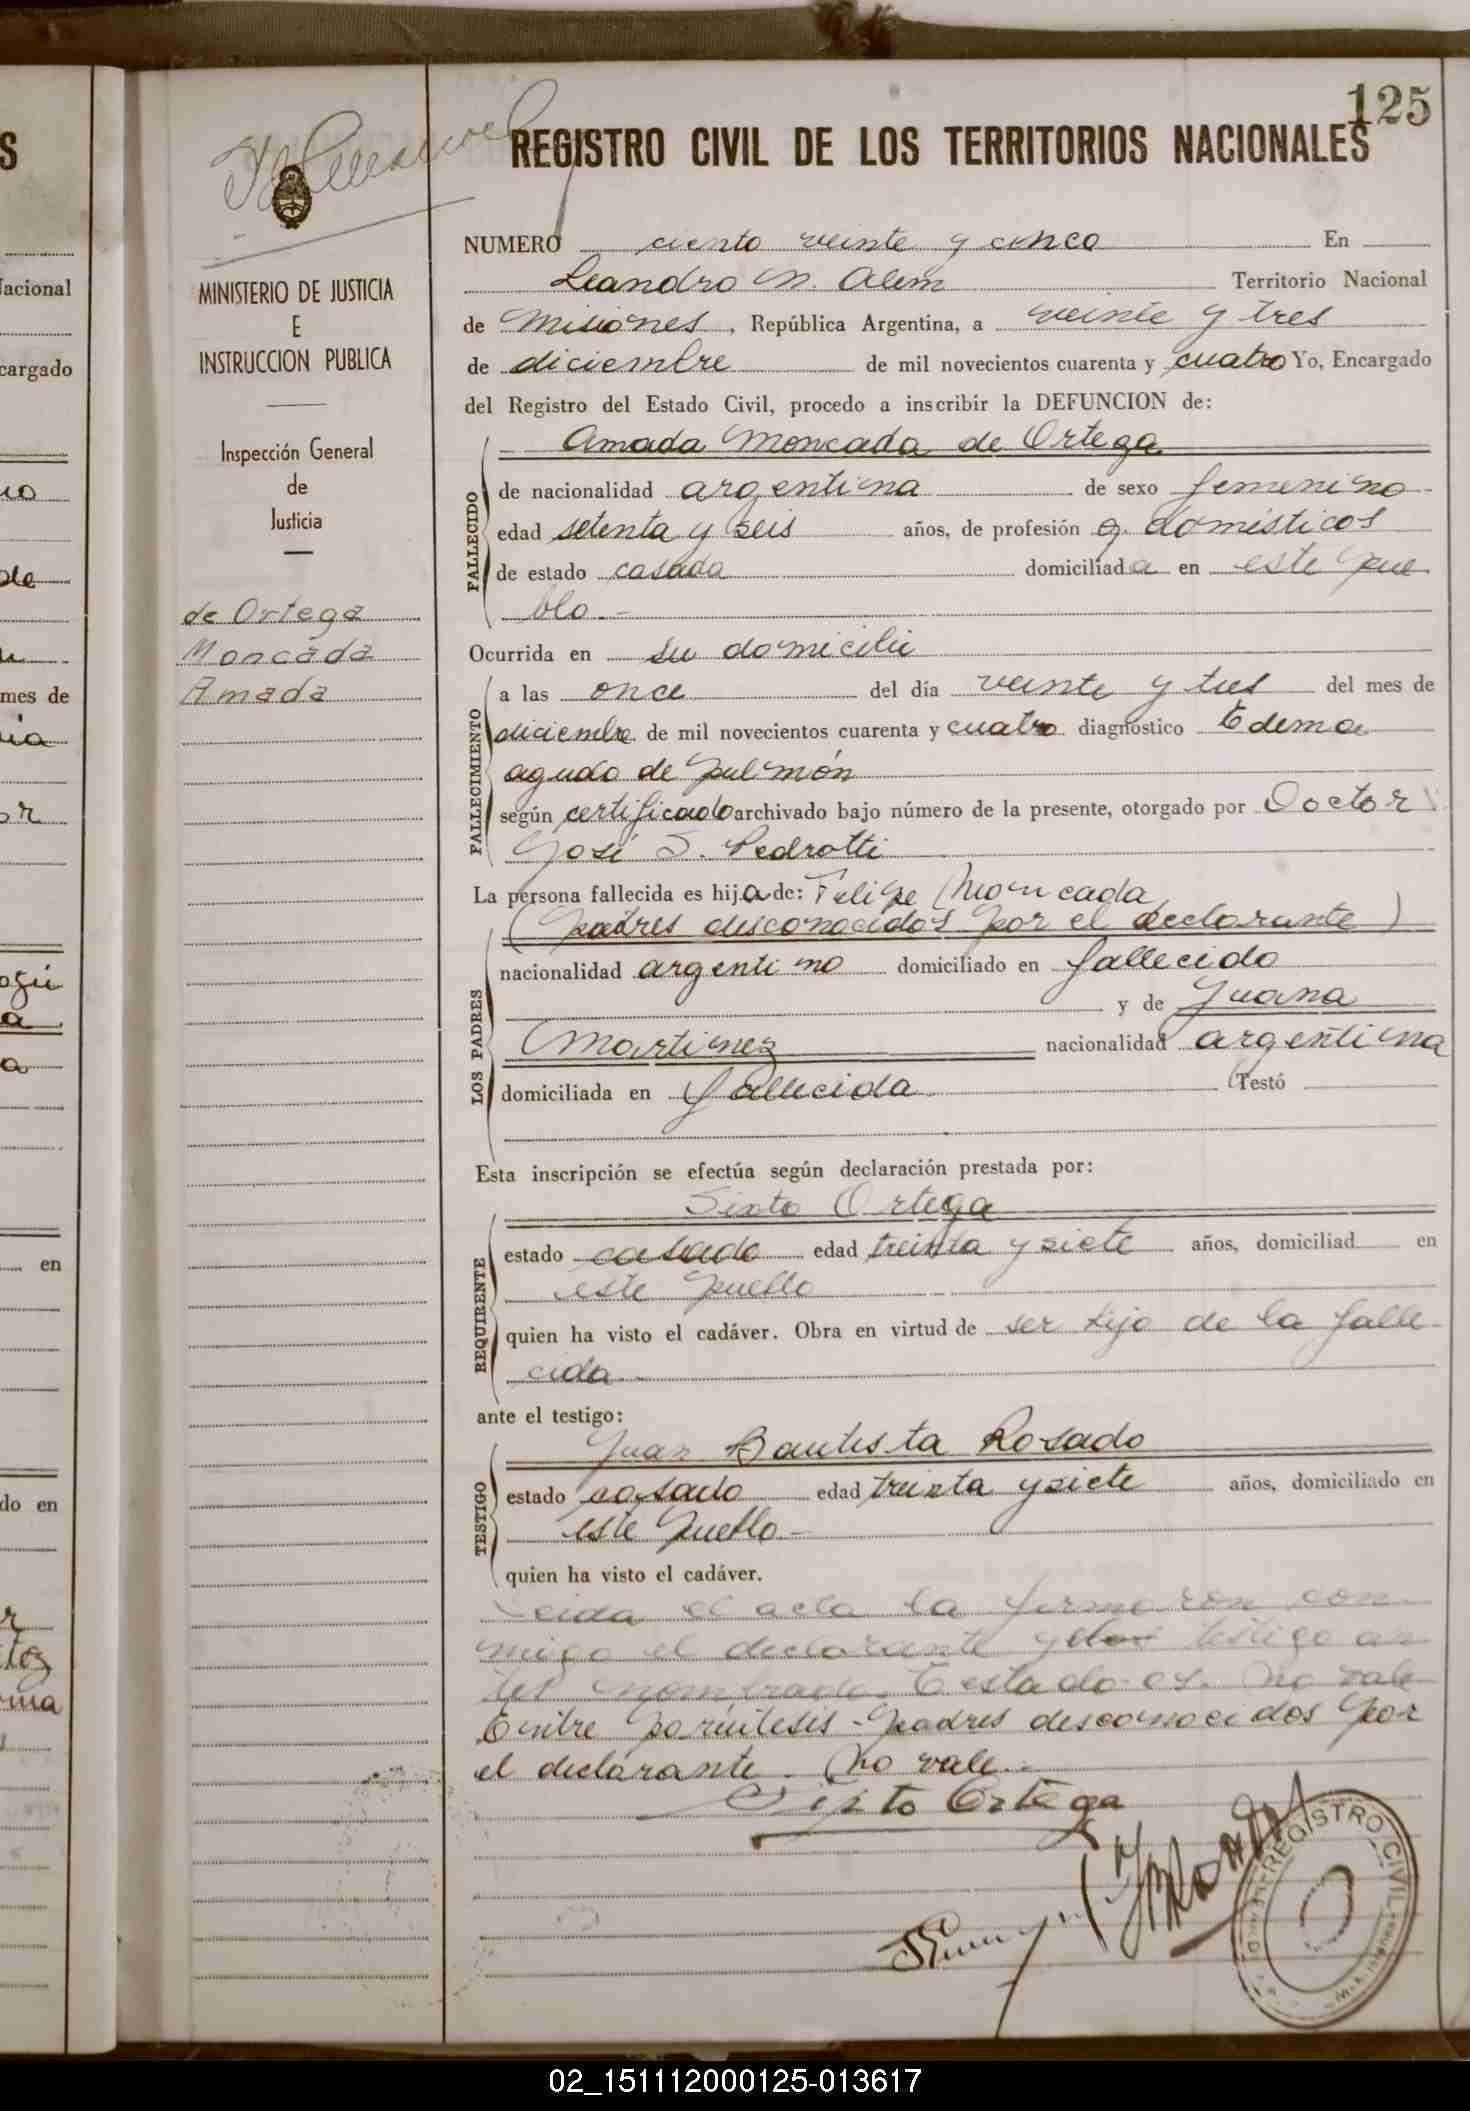 125
REGISTRO CIVIL DE LOS TERRITORIOS NACIONALES
MINISTERIO DE JUSTICIA
E
INSTRUCCION PUBLICA
Inspección General
de
Justicia
de Ortega
Moncada
Amada
NUMERO ciento veinte y cinco En
Leandro N. Alem Territorio Nacional
de Misiones, República Argentina, a veinte y tres
de diciembre de mil novecientos cuarenta y cuatro Yo, Encargado
del Registro del Estado Civil, procedo a inscribir la DEFUNCION de:
Amada Moncada de Ortega
FALLECIDO
de nacionalidad argentina de sexo femenino
edad setenta y seis años, de profesión q. domésticos
de estado casada domiciliada en este pue
blo.-
Ocurrida en su domicilio
FALLECIMIENTO
a las once del día veinte y tres del mes de
diciembre de mil novecientos cuarenta y cuatro diagnóstico Edema
agudo de pulmón
según certificado archivado bajo número de la presente, otorgado por Doctor
José S. Pedrotti
La persona fallecida es hija de: Felipe Moncada
(padres desconocidos por el declarante)
LOS PADRES
nacionalidad argentino domiciliado en fallecido
y de Juana
Martinez nacionalidad argentina
domiciliada en fallecida Testó
Esta inscripción se efectúa según declaración prestada por:
Sixto Ortega
REQUIRENTE
estado casado edad treinta y siete años, domiciliad en
este pueblo
quien ha visto el cadáver. Obra en virtud de ser hijo de la falle
cida
ante el testigo:
Juan Bautista Rosado
TESTIGO
estado casado edad treinta y siete años, domiciliado en
este pueblo-
quien ha visto el cadáver.
Leida el acta la firmaron con
migo el declarante y el testigo an
tes nombrado. Testado-os. No vale
Entre paréntesis-padres desconocidos por
el declarante. No vale.-
Sixto Ortega
REGISTRO CIVIL
Misiones
S
Nacional
cargado
mes de
en
do en
02_151112000125-013617